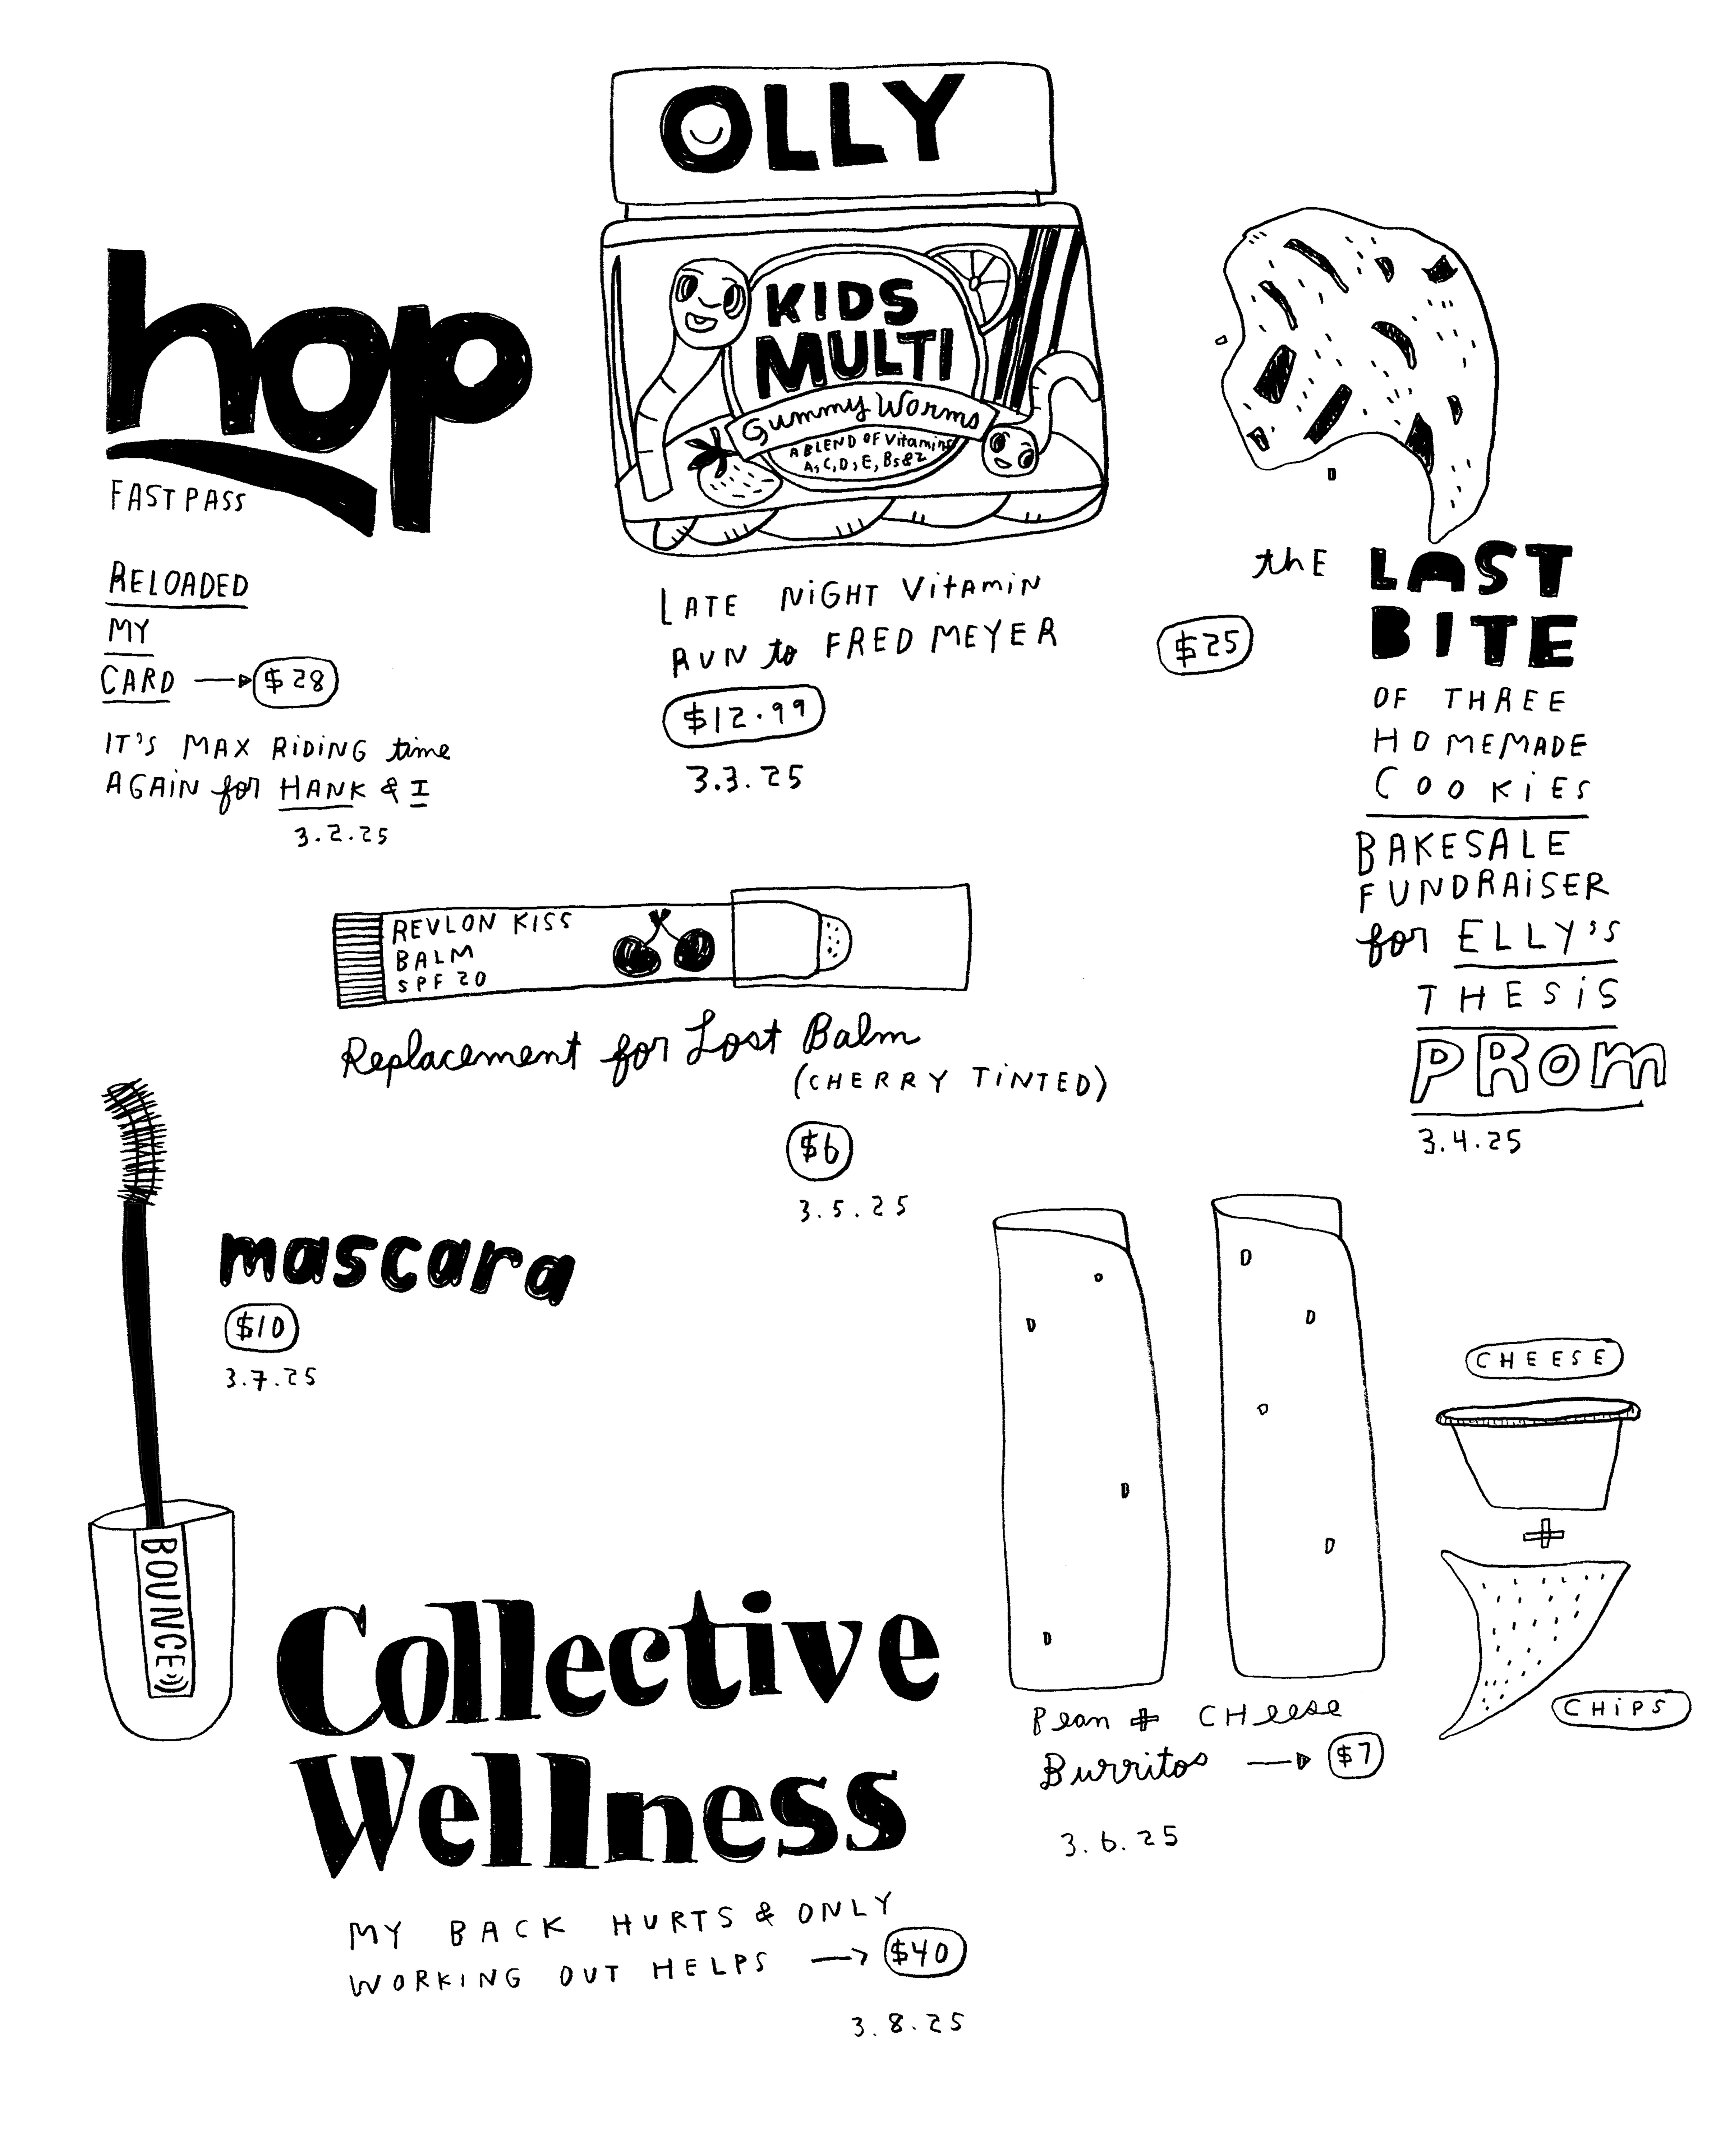 hop
FASTPASS
RELOADED
MY
CARD → $28
IT'S MAX RiDiNG time
AGAiN for HANK & I
3.2.25
OLLY
KIDS
MULTI
Gummy Worms
A BLEND OF Vitamins
A, C, D, E, Bs & Z
LATE NiGHT VitAmiN
RUN to FRED MEYER
$12.99
3.3.25
thE LAST
BITE
$25
OF THREE
HOMEMADE
COOKiES
BAKESALE
FUNDRAiSER
for ELLY'S
THESiS
PROm
3.4.25
REVLON KISS
BALM
SPF 20
Replacement for Lost Balm
(CHERRY TiNTED)
$6
3.5.25
mascara
$10
3.7.25
BOUNCE
CHEESE
+
CHiPS
Bean + CHeese
Burritos → $7
3.6.25
Collective
Wellness
MY BACK HURTS & ONLY
WORKING OUT HELPS → $40
3.8.25